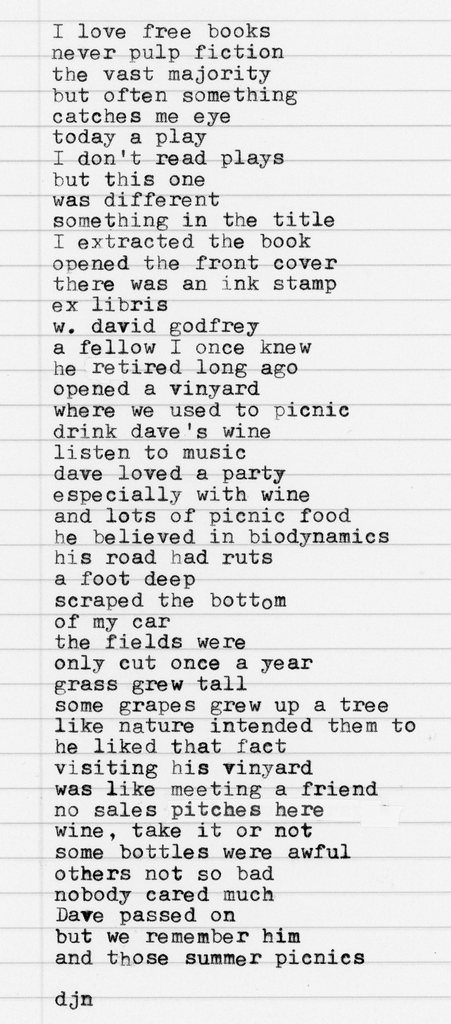 I love free books
never pulp fiction
the vast majority
but often something
catches me eye
today a play
I don't read plays
but this one
was different
something in the title
I extracted the book
opened the front cover
there was an ink stamp
ex libris
w. david godfrey
a fellow I once knew
he retired long ago
opened a vinyard
where we used to picnic
drink dave's wine
listen to music
dave loved a party
especially with wine
and lots of picnic food
he believed in biodynamics
his road had ruts
a foot deep
scraped the bottom
of my car
the fields were
only cut once a year
grass grew tall
some grapes grew up a tree
like nature intended them to
he liked that fact
visiting his vinyard
was like meeting a friend
no sales pitches here
wine, take it or not
some bottles were awful
others not so bad
nobody cared much
Dave passed on
but we remember him
and those summer picnics
djn